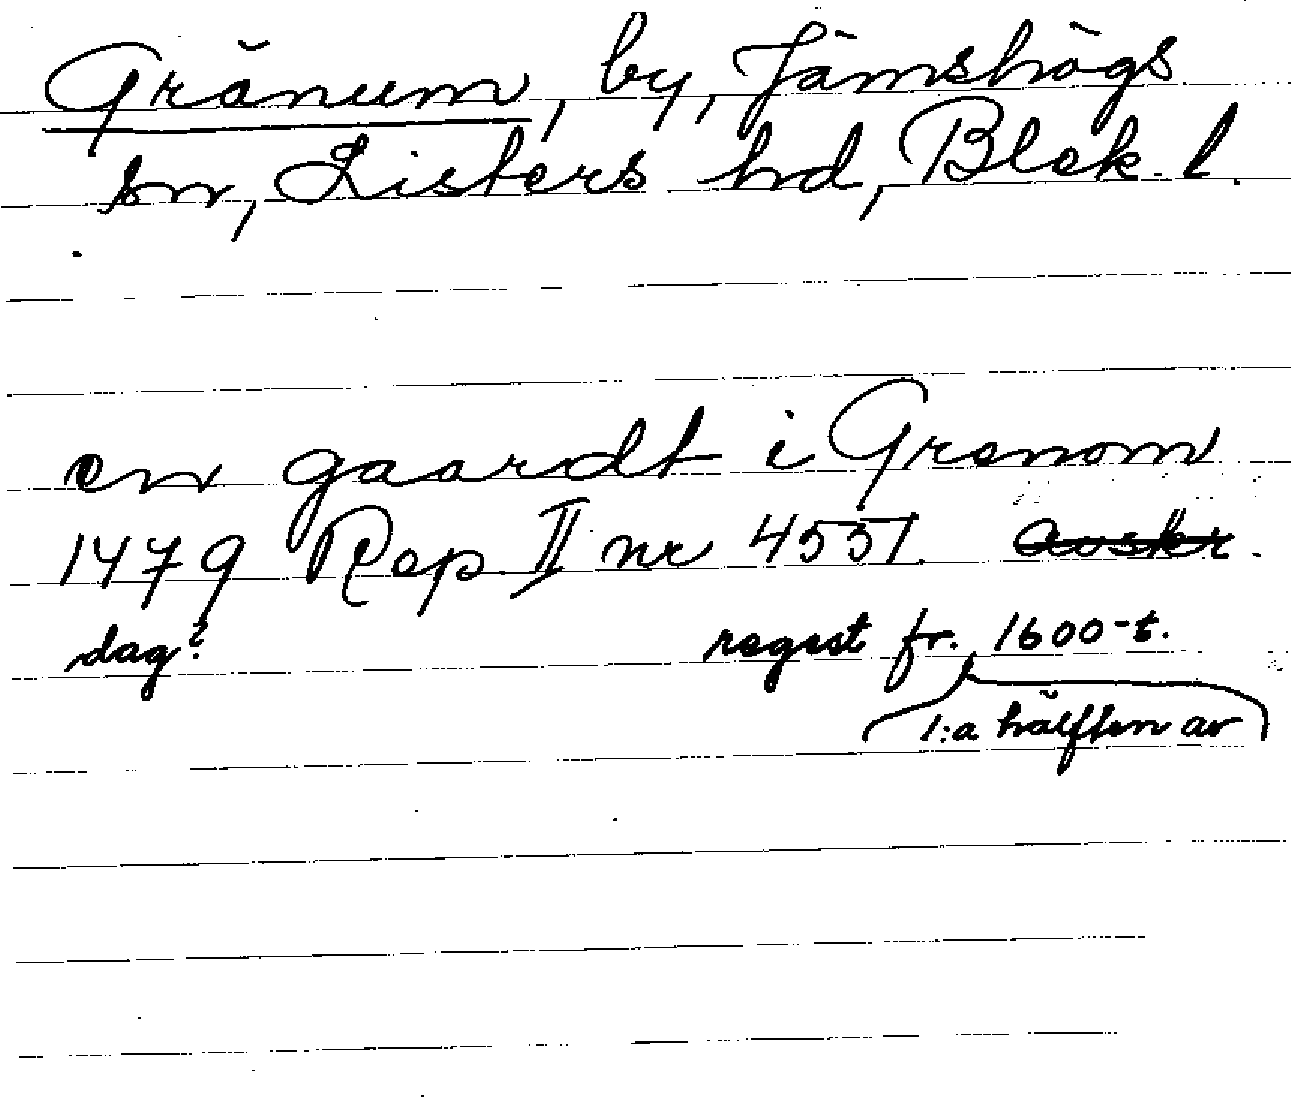 Gränum, by, Jämshögs
sn, Listers hd, Blek. l.
en gaardt i Grenom
1479 Rep II nr 4551 avskr.
dag? regest fr. 1600-t.
1:a hälften av